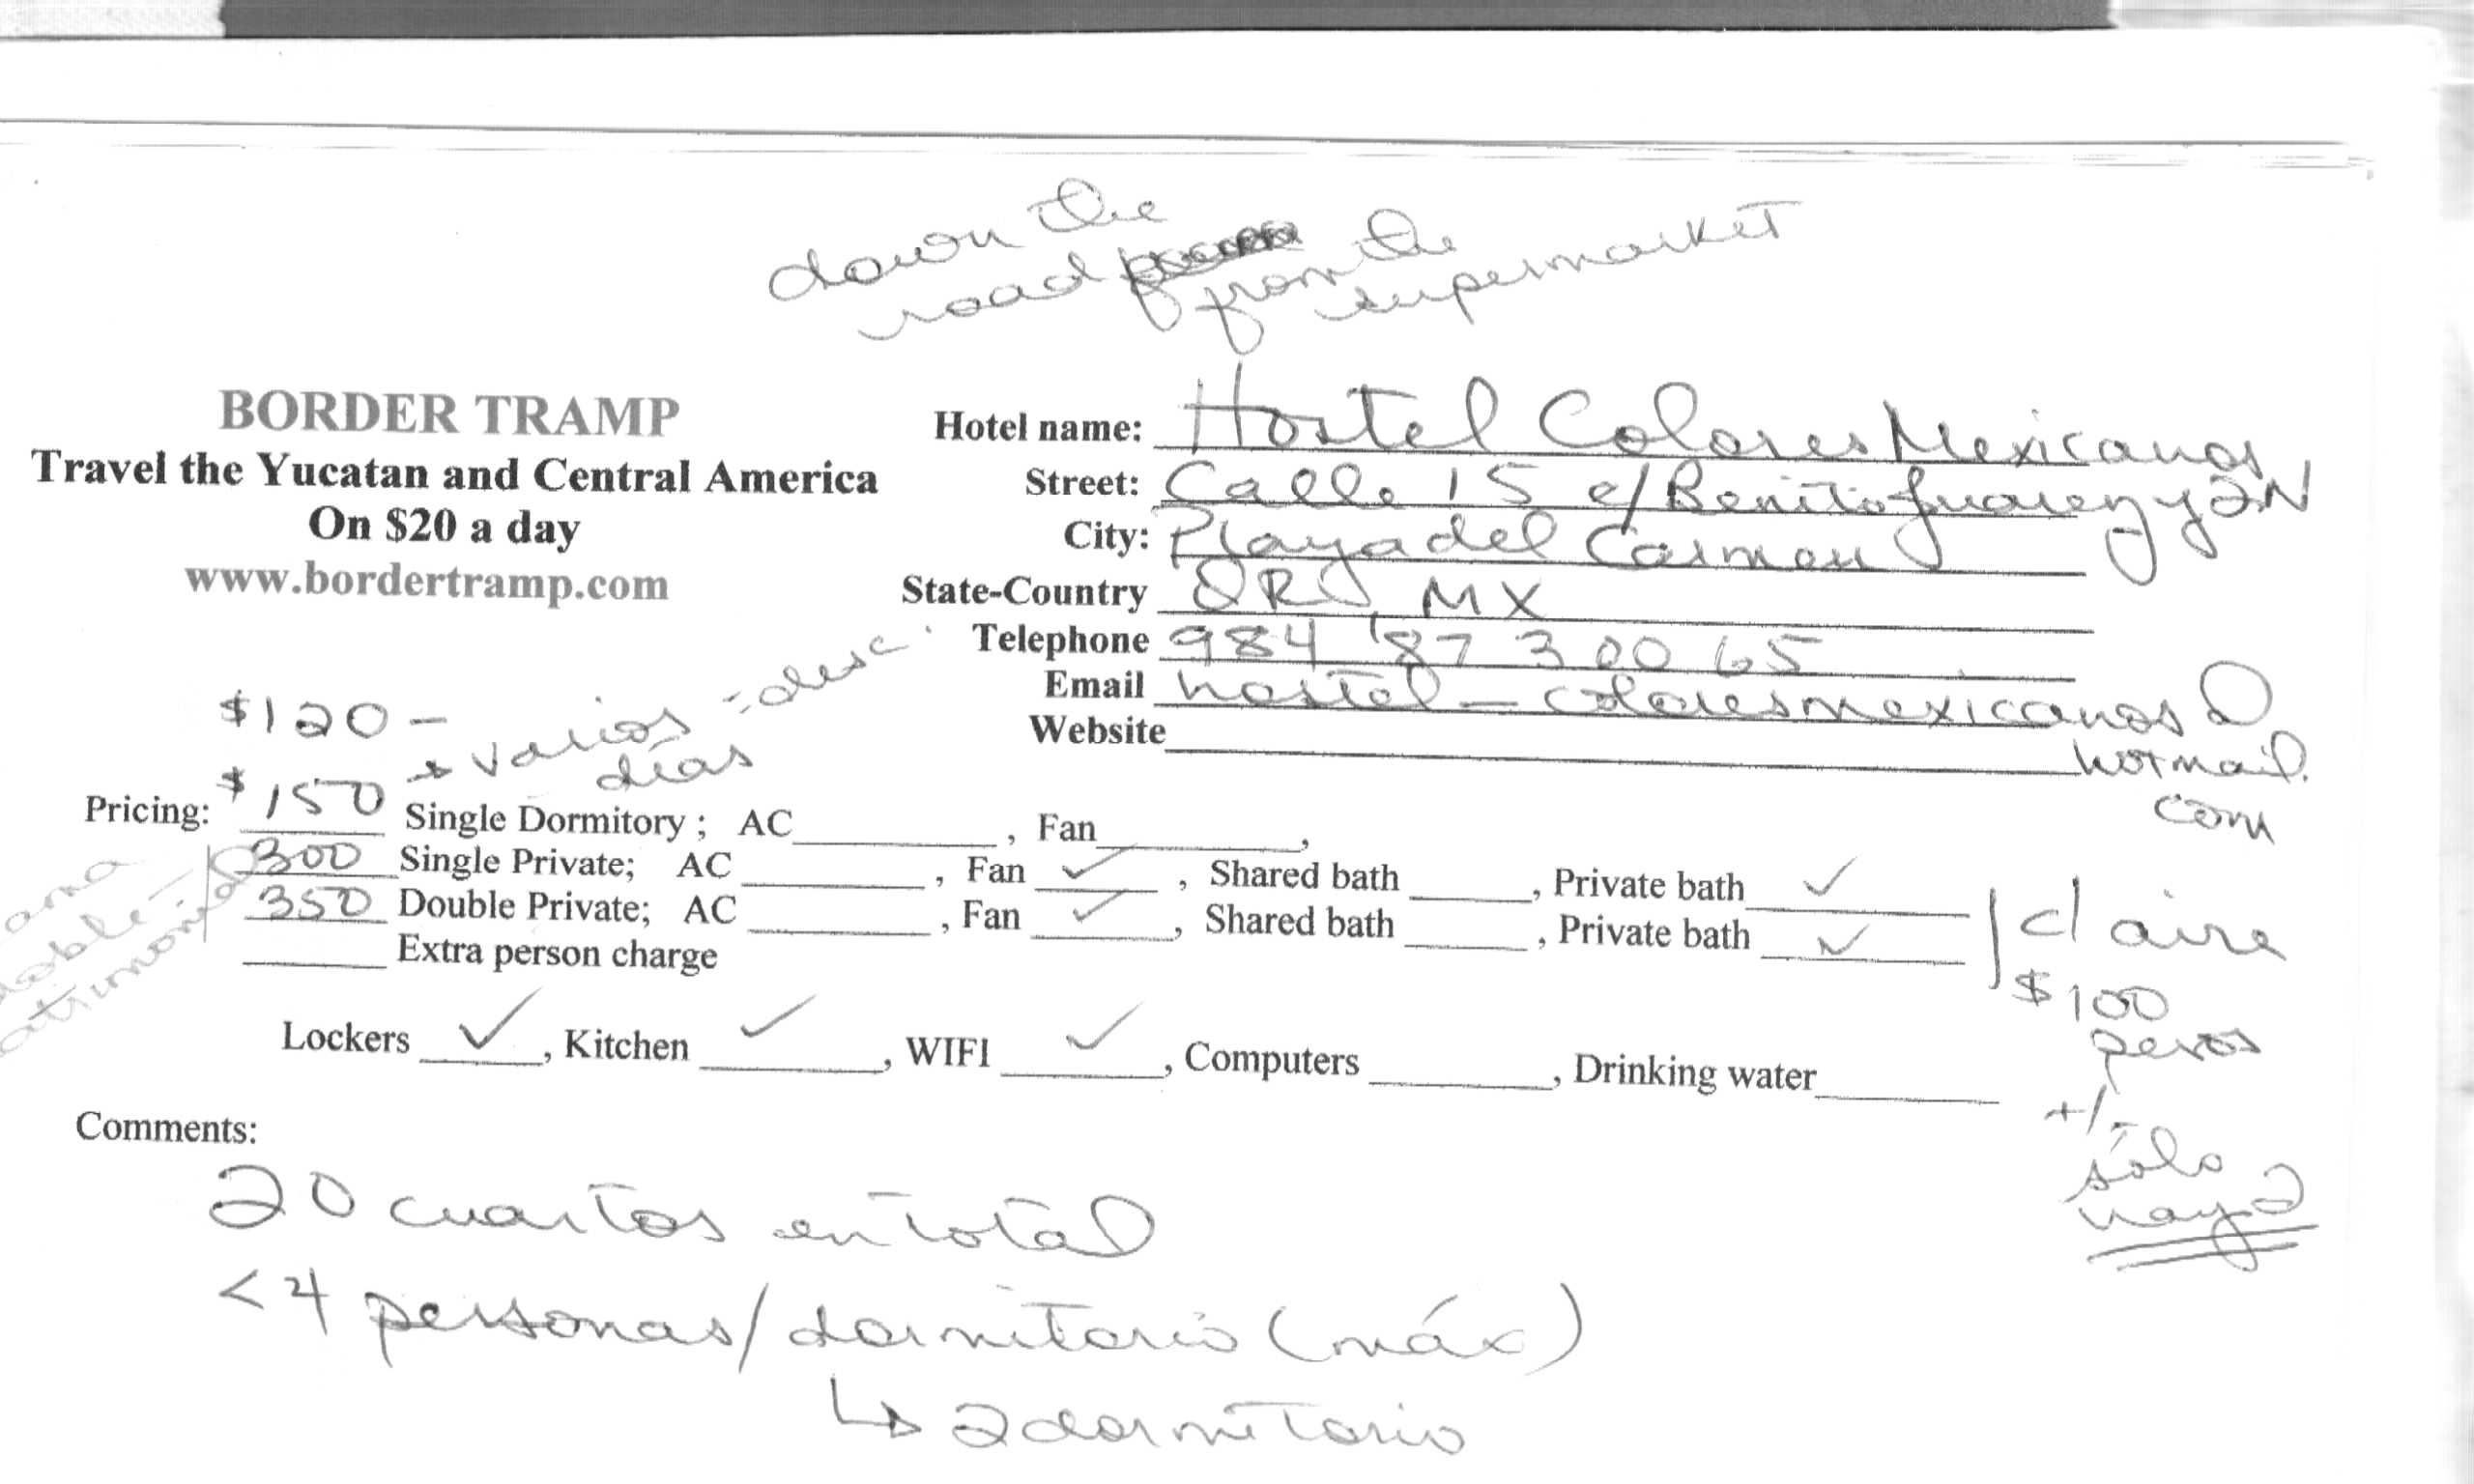 down the
road from the
supermarket
BORDER TRAMP
Travel the Yucatan and Central America
On $20 a day
www.bordertramp.com
Hotel name: Hostel Colores Mexicanos
Street: Calle 15 e/Benito Juarez y 2N
City: Playa del Carmen
State-Country QRO, MX
Telephone 984 87 3 00 65
Email hostel_coloresmexicanos@
hotmail.
com
Website
$120 - + varios días = desc.
Pricing: $150 Single Dormitory; AC , Fan ,
300 Single Private; AC , Fan ✓ , Shared bath , Private bath ✓
350 Double Private; AC , Fan ✓ , Shared bath , Private bath ✓
Extra person charge
c/ aire
$100
pesos
+/-
sólo
hay 2
Lockers ✓, Kitchen ✓, WIFI ✓, Computers , Drinking water
Comments:
20 cuartos en total
<4 personas/dormitorio (máx)
↳ 2 dormitorio